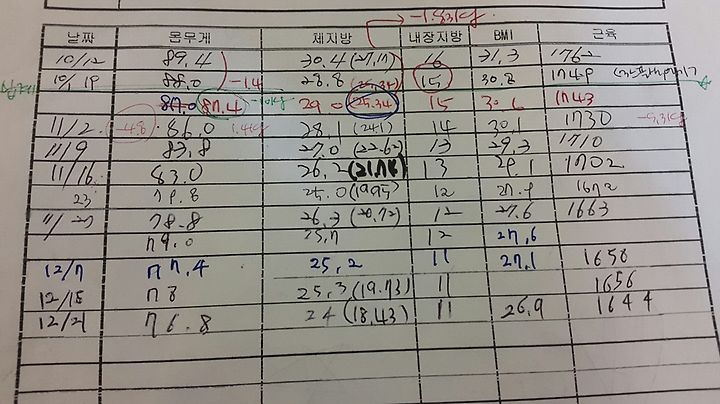 -1.83kg
날짜 몸무게 체지방 내장지방 BMI 근육
10/12 89.4 30.4 (27.17) 16 31.3 1762
10/19 88.0 -1.4 28.8 (25.34) 15 30.8 1749
87.0 87.4 29.0 25.34 15 30.6 1743
11/2 -4.8 86.0 28.1 (24.1) 14 30.1 1730
11/9 83.8 27.0 (22.62) 13 29.3 1710
11/16 83.0 26.2 (21.74) 13 29.1 1702
23 79.8 25.0 (19.95) 12 27.9 1672
11/27 78.8 26.3 (20.72) 12 27.6 1663
79.0 25.7 12 27.6
12/7 77.4 25.2 11 27.1 1658
12/15 78 25.3 (19.73) 11 1656
12/21 76.8 24 (18.43) 11 26.9 1644